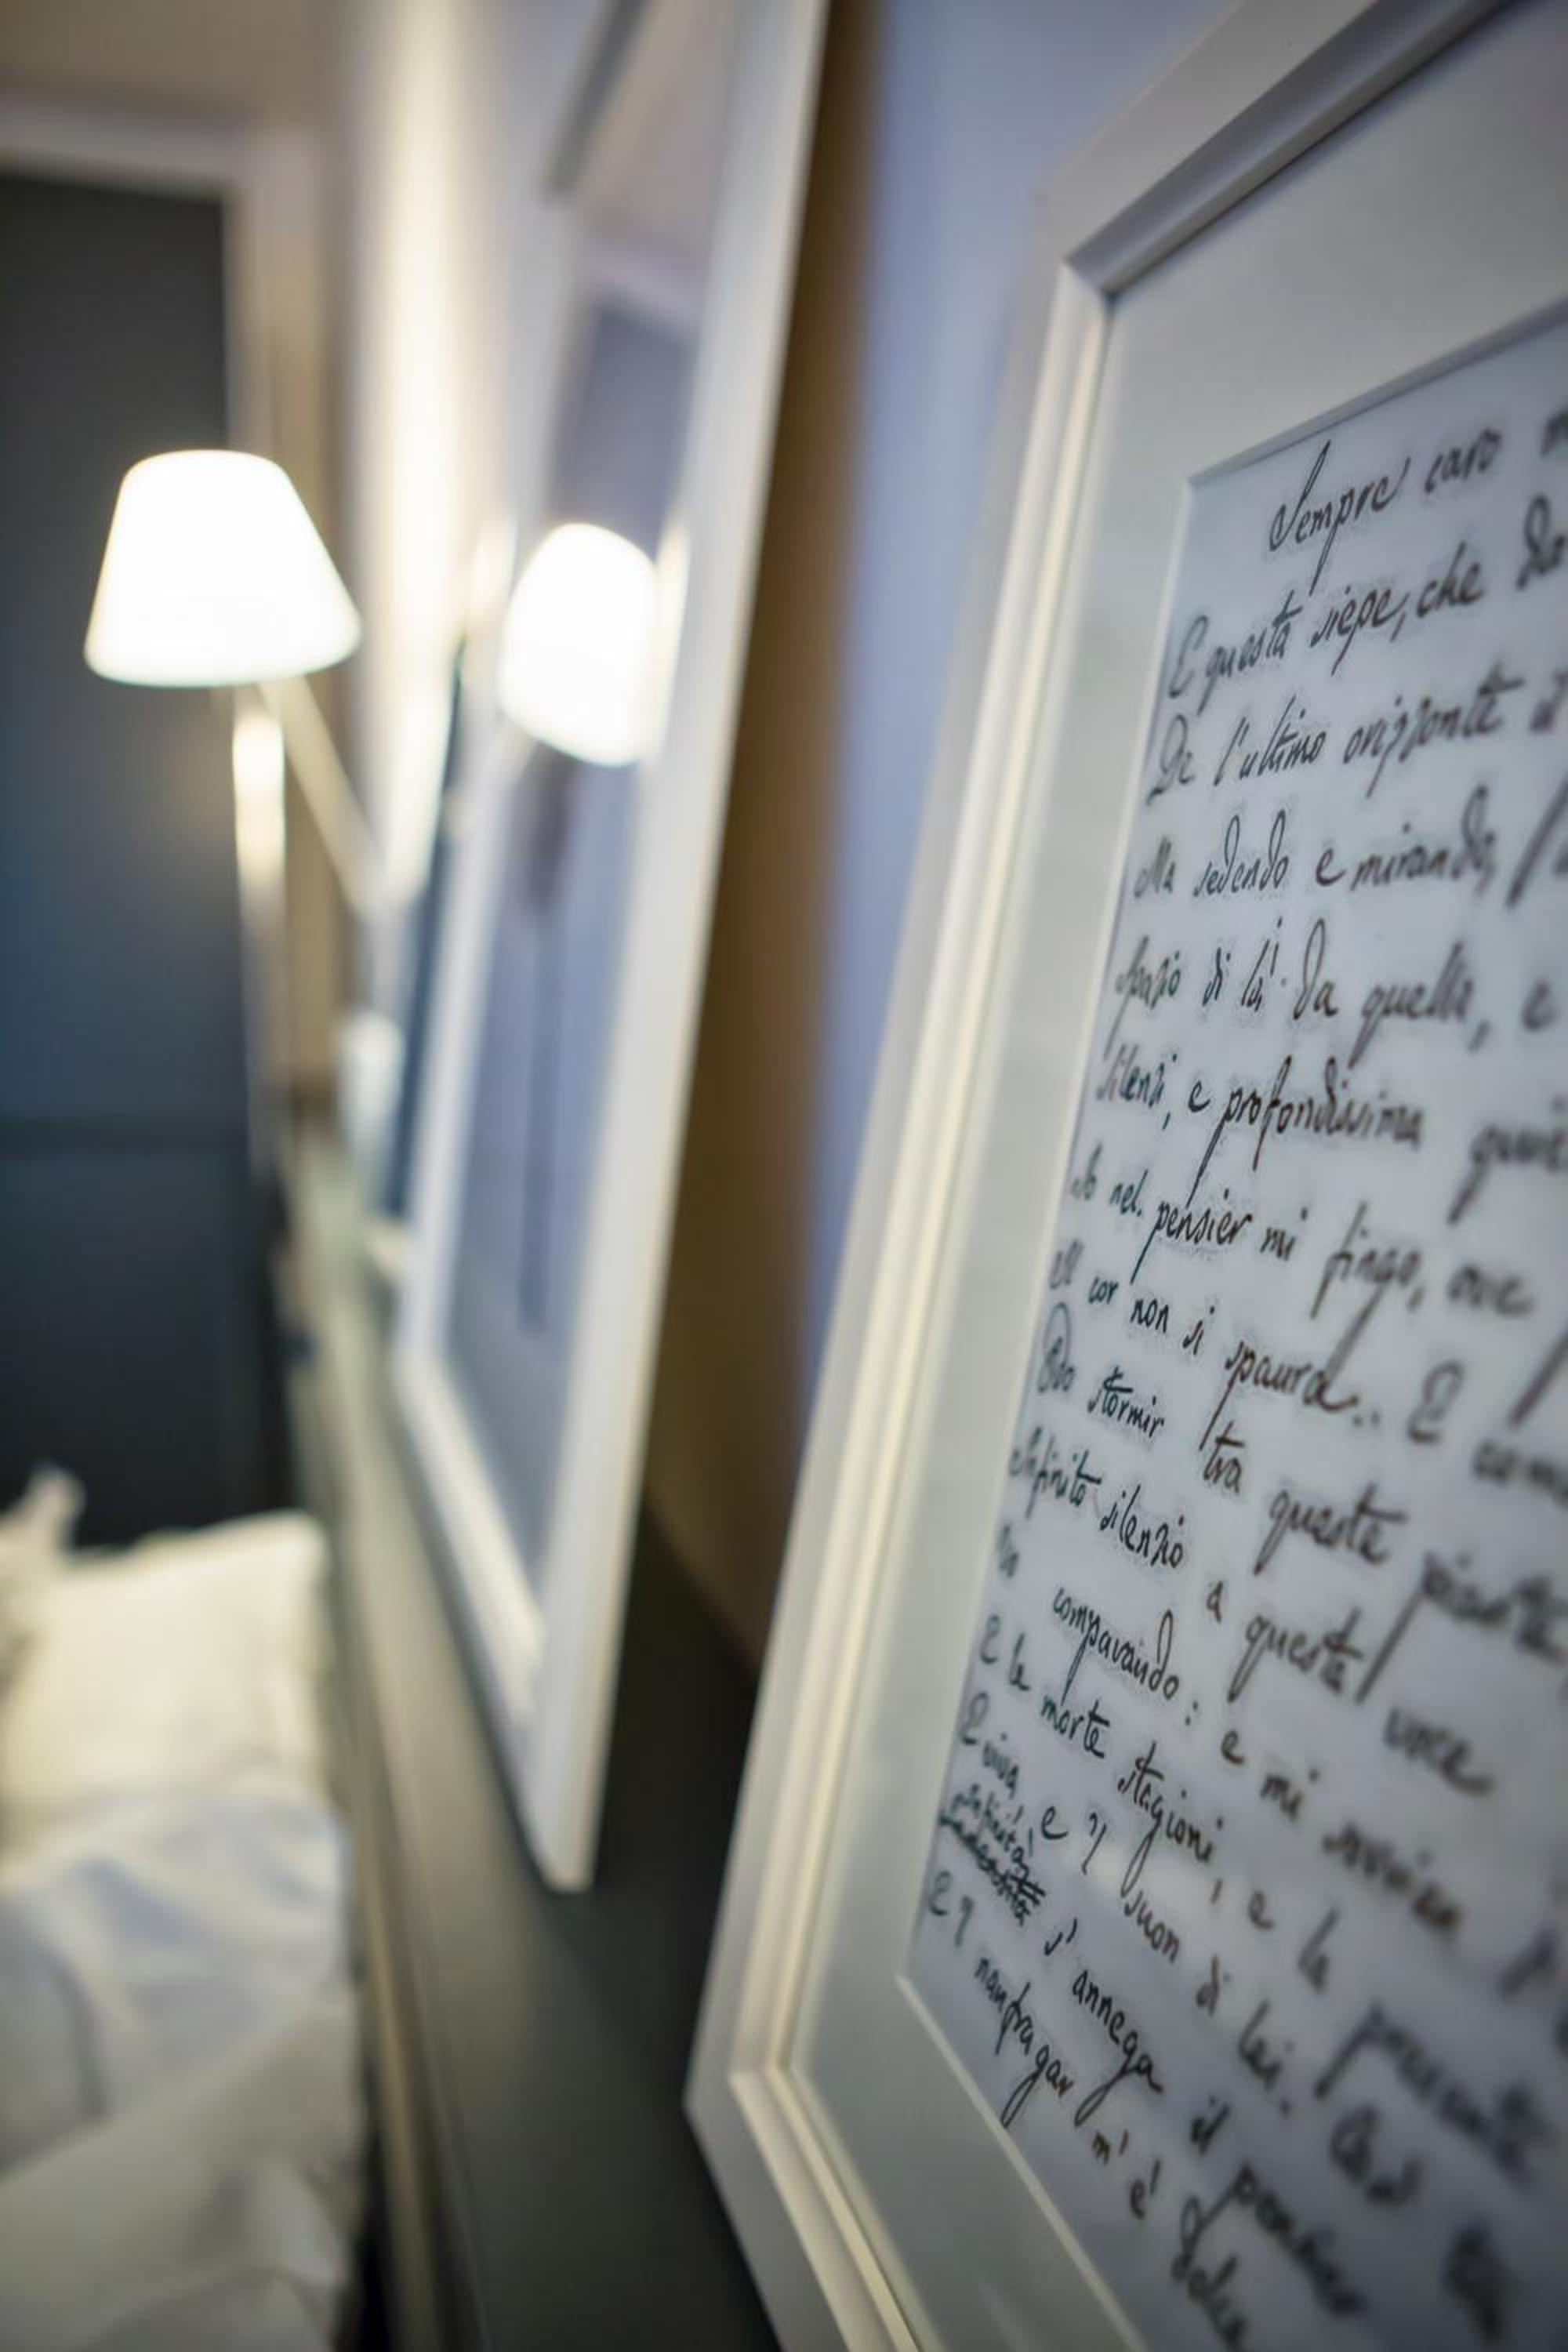 Sempre caro
E questa siepe, che da
De l'ultimo orizzonte il
Ma sedendo e mirando,
Spazio di là da quella, e
Silenzi, e profondissima quie
Io nel pensier mi fingo, ove
Il cor non si spaura. E com
Odo stormir tra queste piante
Infinito silenzio a questa voce
Vo comparando: e mi sovvien
E le morte stagioni, e la presente
E viva, e 'l suon di lei. Così
infinità
immensità s'annega il pensier
E 'l naufragar m'è dolce